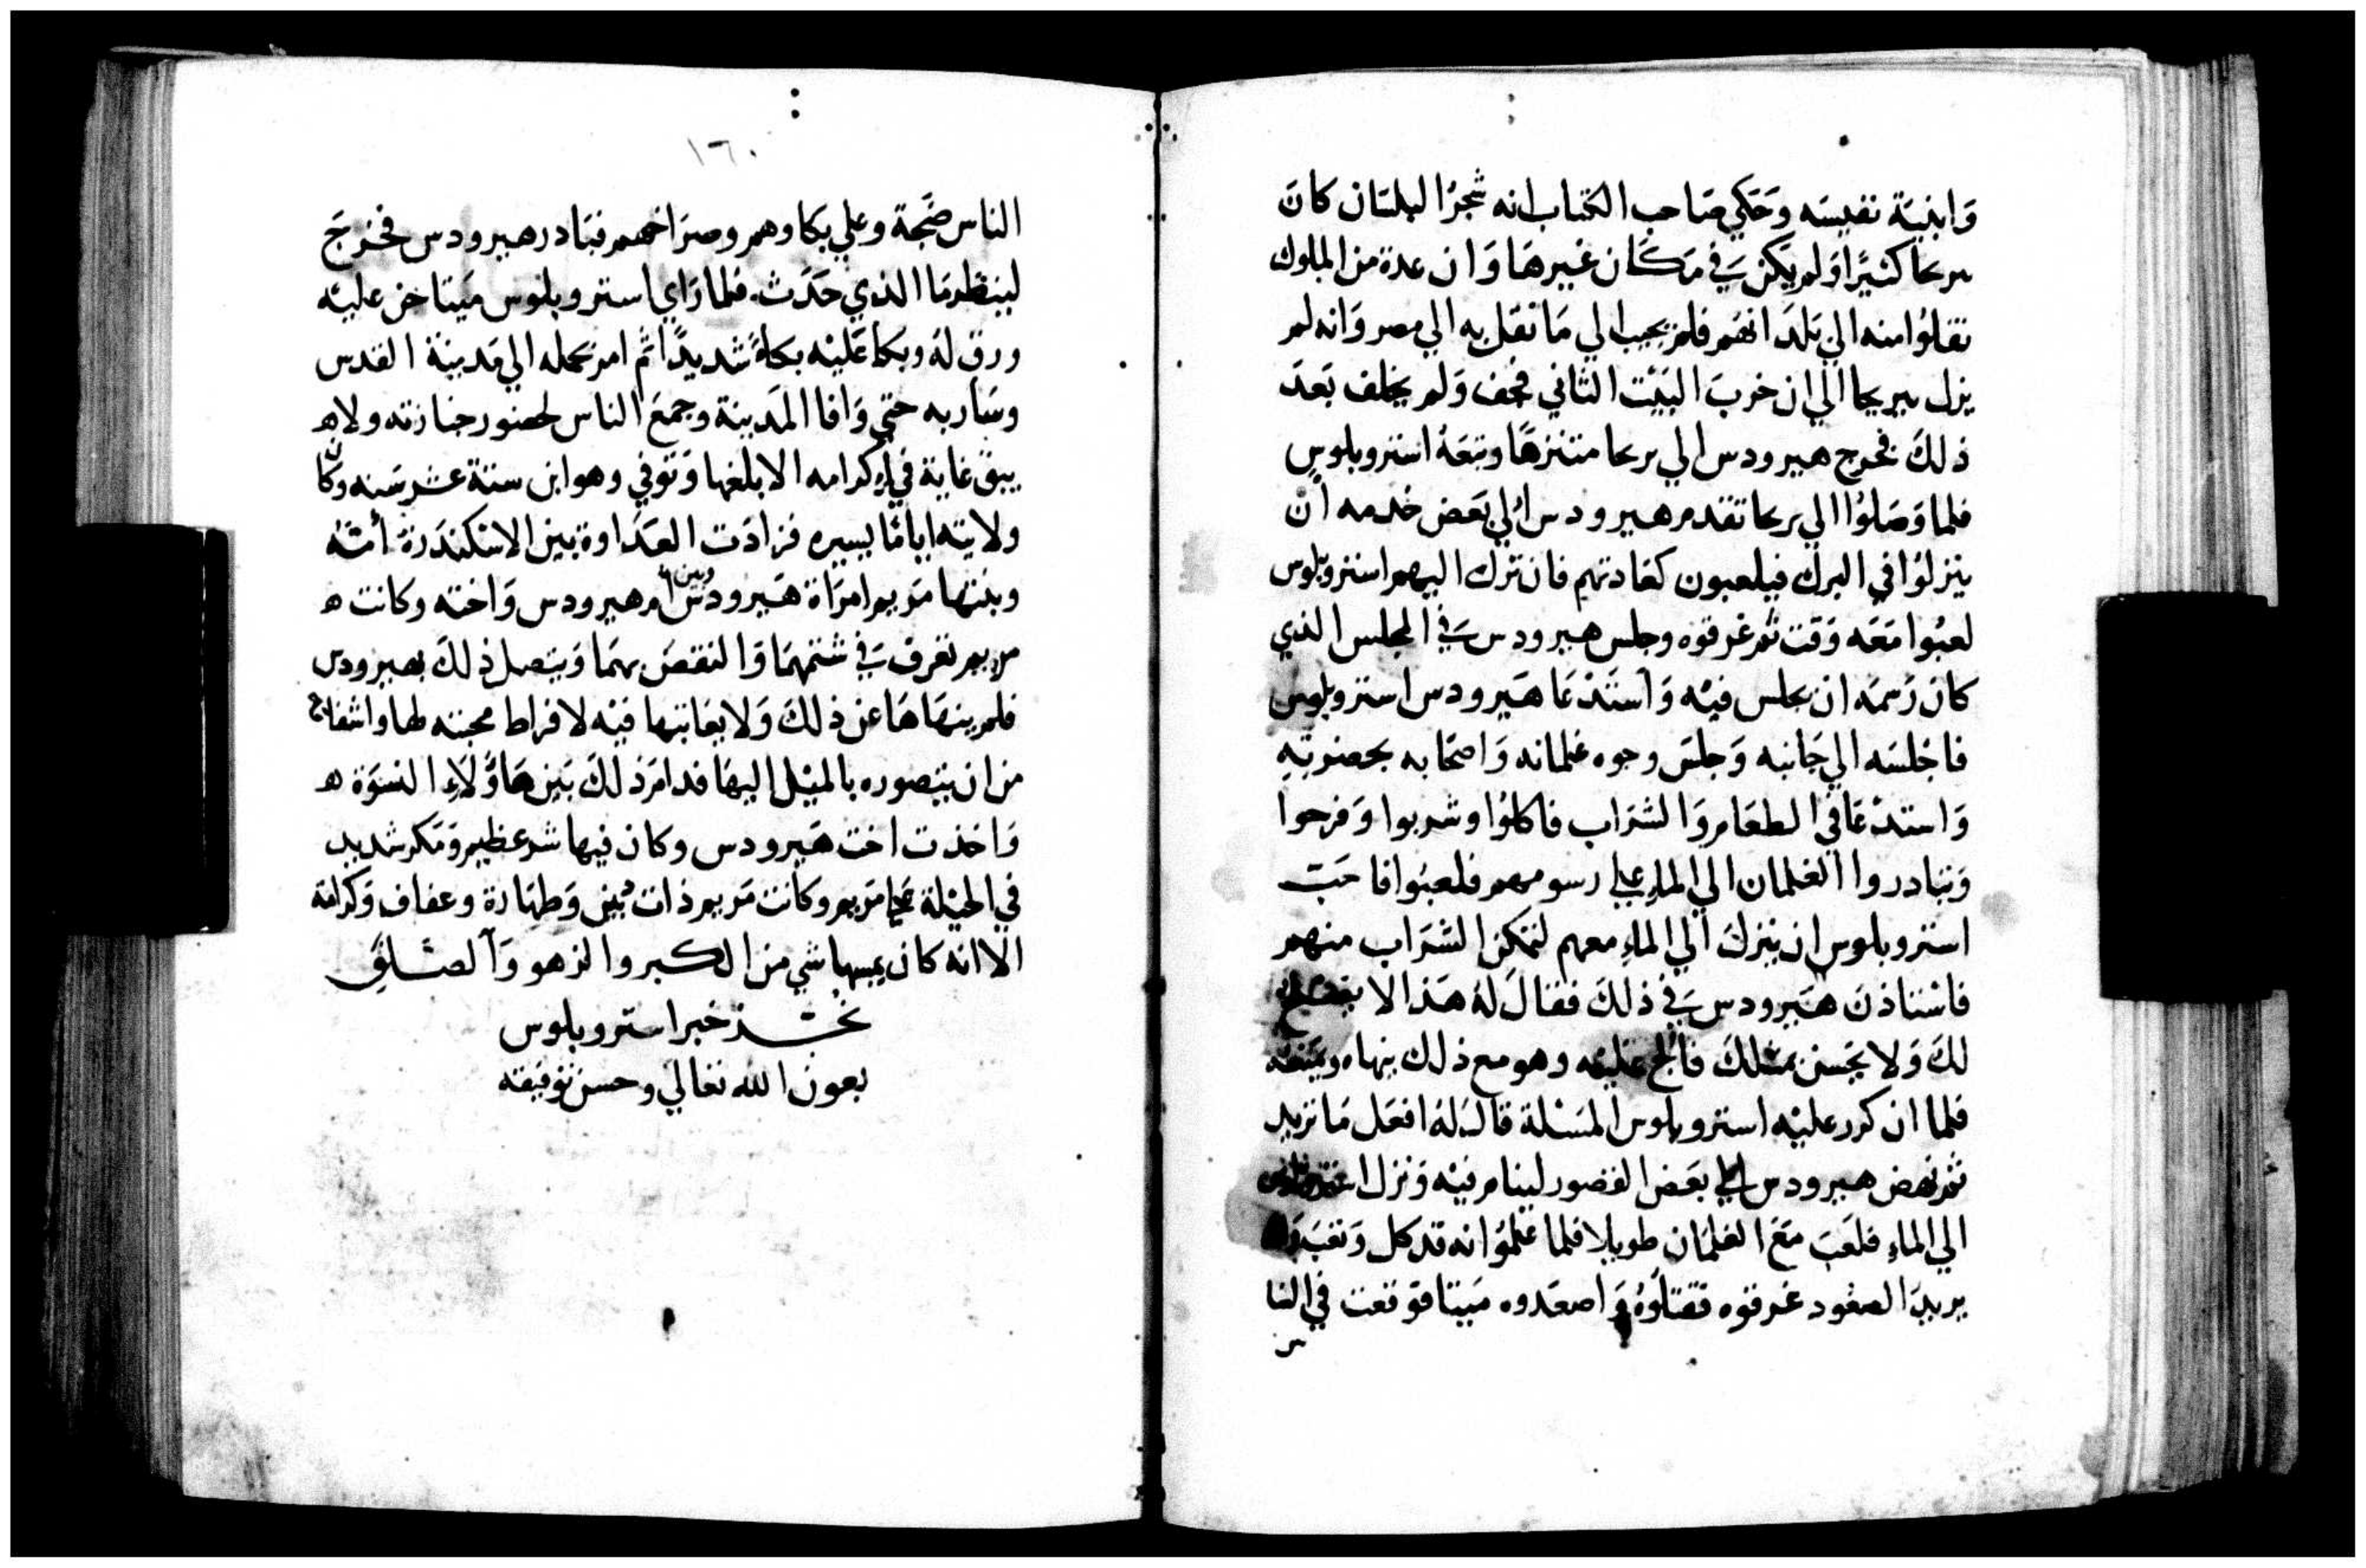 وَابنية نفيسَه وَحَكي صَاحب الكتاب انه شجرُ البلسَان كانَ
بريحا كثيرًا وَلم يكن َفي مَكَان غيرهَا وَان عدة من الملوك
نقلوُا منه الي بَلدَانهَم فلم يجب الي مَا نقل به الي مصر وَانه لم
يزل بيريحا الي ان خربَ البَيْت الثاني فجف وَلم يخلف بَعدَ
ذلكَ فخرج هيرودس الي يريحا متنزهًا وتبَعَهُ استروبلوس
فلما وَصَلوُا الي يريحا تقدم هيرودس الي بَعَض خدمه ان
ينزلوُا في البرك فيلعبون كعَادتهم فان ترك اليهم استروبلوس
لعبُوا مَعَه وَقت ثم غرقوه وجلس هيرودس َفي المجلس الذي
كان رَسمَه ان يجلس فيْه وَاسْتَدْعَا هَيرودس استروبلوس
فاجْلسَه الي جَانبه وَجلسَ وجوه غلمانه وَاصحَابه بحضرتِهِ
وَاستدْعَا في الطعَام وَالشرَاب فاكلوُا وشربوا وَفرحوا
وَتبَادروا الغلمان الي الماءِ علي رسومهم فلعبُوا فاحَبّ
استروبلوس ان ينزلَ الي الماءِ معهم لتمكن الشرَاب منهم
فاسْتاذنَ هَيرودس َفي ذلكَ فقالَ لهُ هَذا لا يصلح
لكَ وَلا يحَسن بمثلكَ فالح عَليْه وهو مع ذلك ينهاه ويمنعَه
فلما ان كرر عليْه استروبلوس المَسْلة قالَ لهُ افعَل مَا تريد
ثم نهض هيرودس الي بعَض القصور لينام فيْه وَنزل استروبلوس
الي الماءِ فلعَبَ مَعَ الغلمَان طويلا فلما عَلموُا انه قد كل وَتعَبَ
يريدَ الصعُود غرقوه فقتلوُهُ وَاصعَدوه مَيتا فوَقعت في النا
س
١٦٠
الناس ضَجة وعلي بكاوهم وصرَاخهم فتبَادر هيرودس فخرجَ
لينظر مَا الذي حَدَث. فلما رَاي استروبلوس مَيتا حزن عليْه
ورق لهُ وبكا عَليْه بكاءً شديدًا ثم امر بحمله الي مَدينة القدس
وسَار به حتي وَافا المَدينة وجمعَ الناس لحضور جنازته ولم
يبق غاية في اِكرامه الا بلغها وَتوُفي وهو ابن ستة عشر سَنه وكان
ولايته ايامًا يسيره فزادَت العَدَاوة بين الاسْكندَرة اُمّهُ
وبنتها مَريم امرَاة هَيرودس وبين ام هيرودس وَاخته وكانت
مريم تعرف َفي شتمهمَا وَالنقصَ بهمَا وَيتصل ذلكَ بهيرودس
فلم ينهَاهَا عن ذلكَ وَلا يعَاتبها فيْه لافراط محبته لها واشفاقه
من ان يتصوره بالميْل اليهَا فدامَ ذلكَ بَين هَاوُلاءِ النسوَة
وَاخذت اخت هَيرودس وكان فيها شر عظيم وَمَكر شديد
في الحيْلة عَلي مَريم وكانت مَريم ذات دْين وَطهَارة وعفاف وَكرامَة
الا انه كان يمسها شي من الكبر والزهو وَالصَلف
نجَـــز خبر استروبلوس
بعون الله تعالي وحسن توفيقه